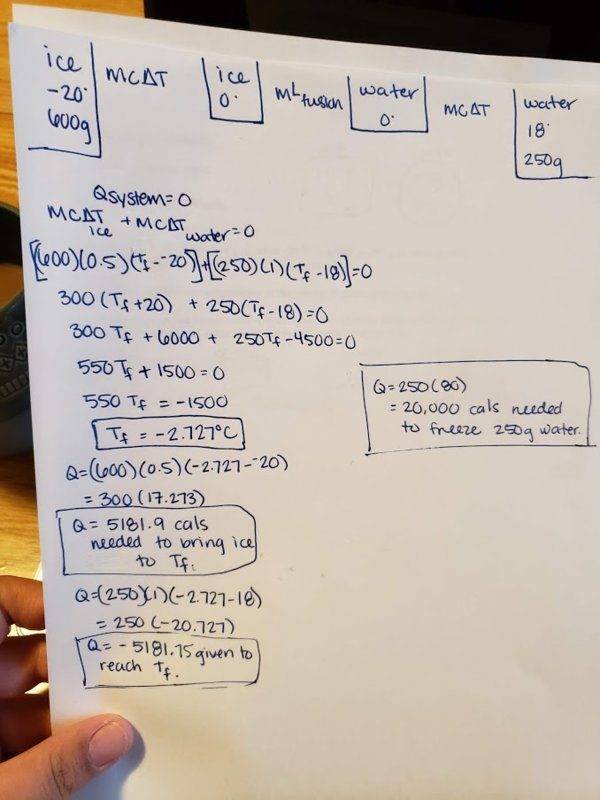 ice
-20°
600g
MCΔT
ice
0°
MLfusion
water
0°
MCΔT
water
18°
250g
Qsystem=0
MCΔT ice + MCΔT water = 0
[(600)(0.5)(Tf - -20)]+[(250)(1)(Tf -18)]=0
300(Tf+20) + 250(Tf-18)=0
300Tf + 6000 + 250Tf - 4500=0
550Tf + 1500 = 0
550Tf = -1500
Tf = -2.727°C
Q=(600)(0.5)(-2.727 - -20)
= 300(17.273)
Q = 5181.9 cals
needed to bring ice
to Tf.
Q=(250)(1)(-2.727-18)
= 250(-20.727)
Q= -5181.75 given to
reach Tf.
Q=250(80)
= 20,000 cals needed
to freeze 250g water.